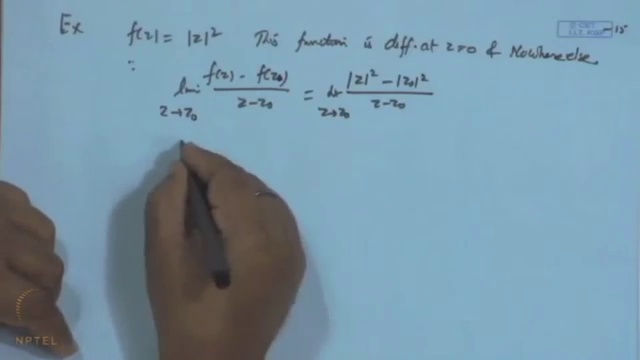 Ex f(z) = |z|² This function is diff. at z=0 & Nowhere else.
∵ lim z→z₀ f(z) - f(z₀) / z - z₀ = lt z→z₀ |z|² - |z₀|² / z - z₀
© CET
I.I.T. KGP
NPTEL